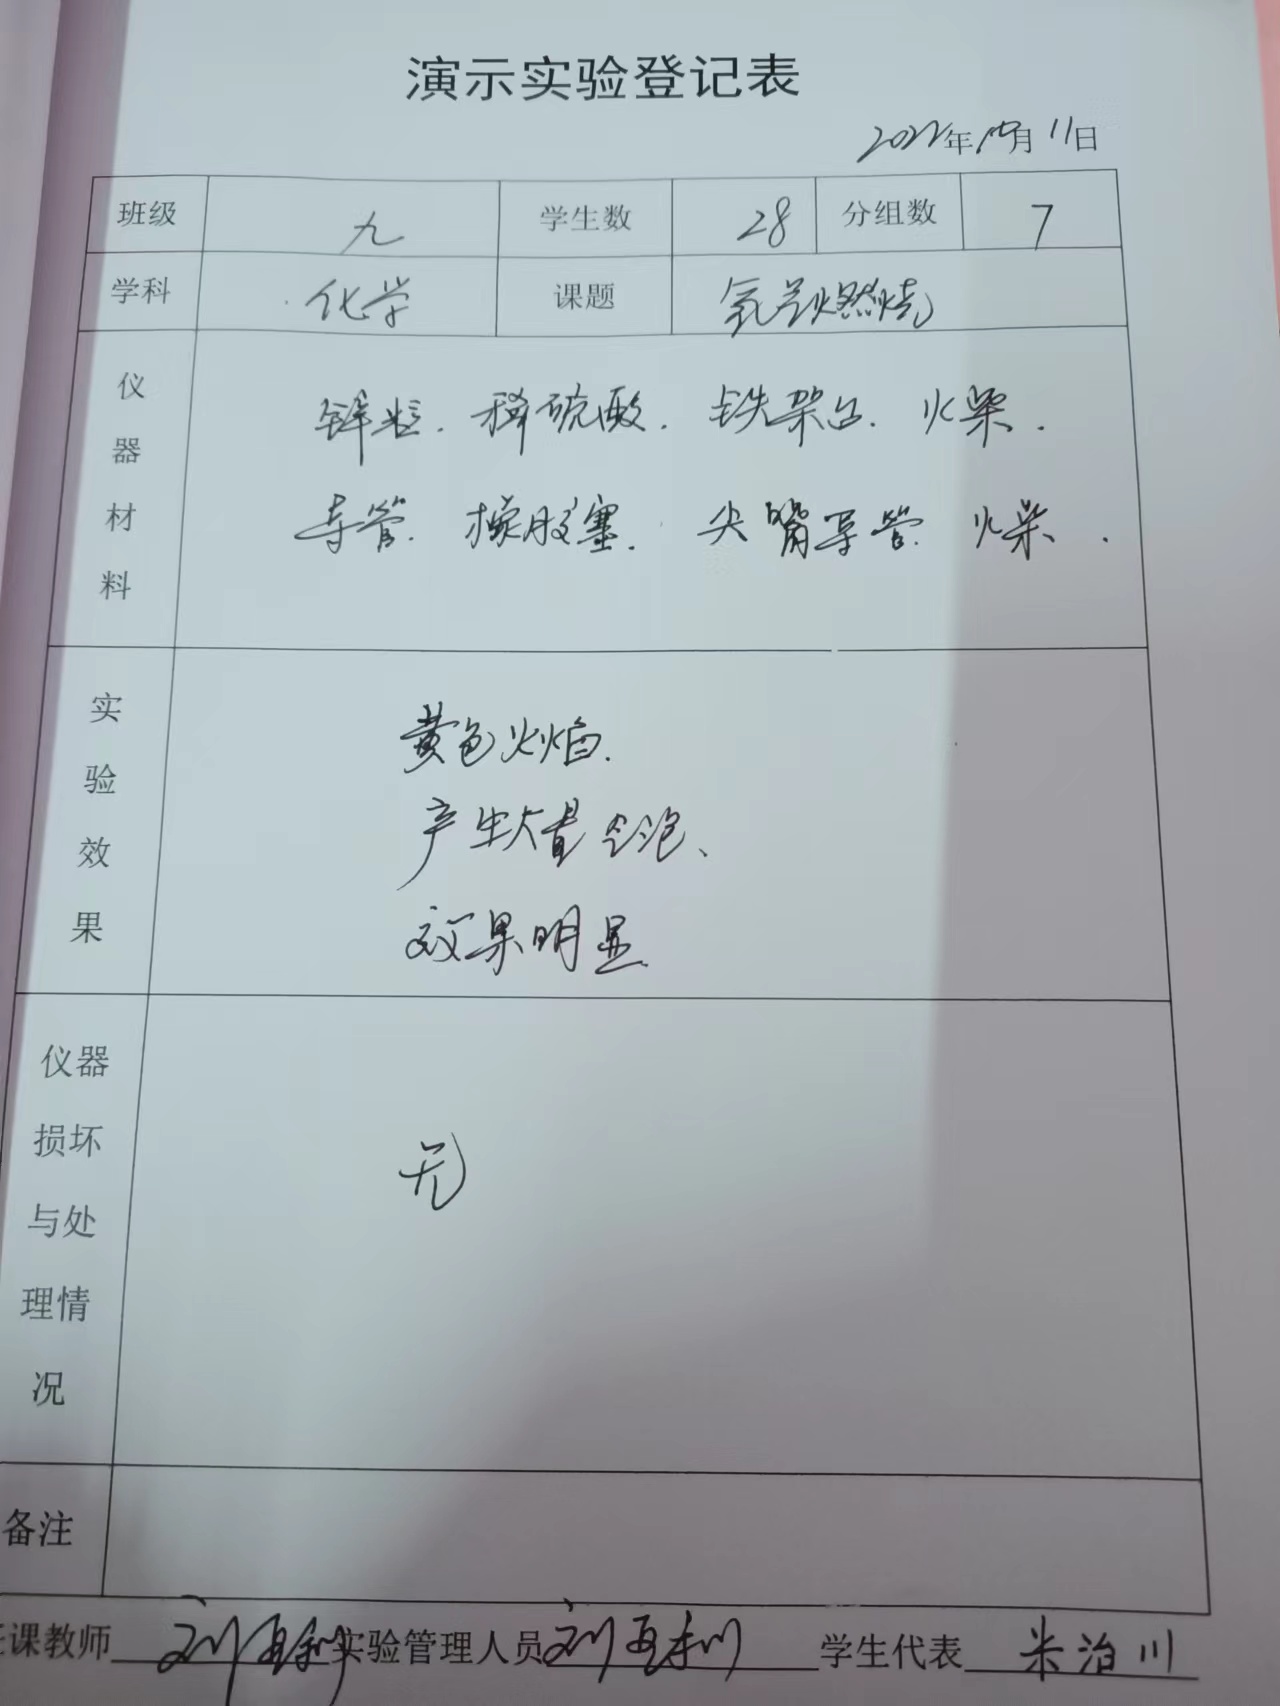 演示实验登记表
2022年10月11日
班级 九 学生数 28 分组数 7
学科 化学 课题 氢气燃烧
仪器材料
锌粒.稀硫酸.铁架台.火柴.
导管.橡胶塞.尖嘴导管.火柴.
实验效果
黄色火焰.
产生大量气泡、
效果明显
仪器损坏与处理情况
无
备注
课教师 刘 实验管理人员 刘 学生代表 米治川